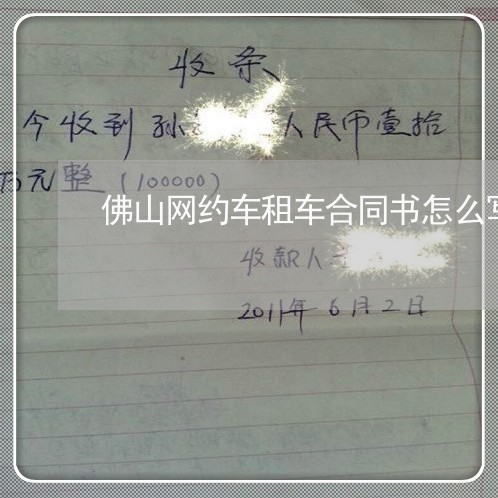 收条
今收到孙 人民币壹拾
万元整（100000）
佛山网约车租车合同书怎么写
收款人
2011年6月2日